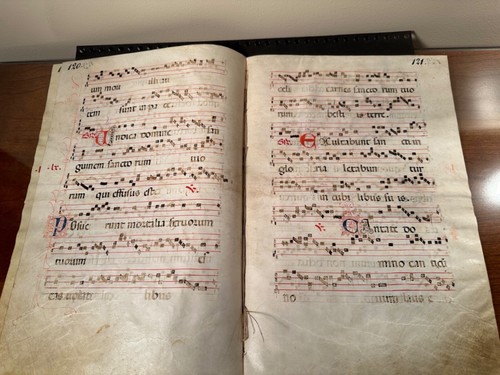 120
um mon
tem sunt in pa ce
Vindica domine san
guinem sancto rum tuo
rum qui effusus est. ℣.
Posue runt mortalia servorum
tuorum es
cas volati libus
121
celi carnes sancto rum tuo
rum besti is terre.
Exultabunt san cti in
glo ria letabun tur
in cubi libus su is.
℣. Cantate do
mino can ticu
no vum laus e